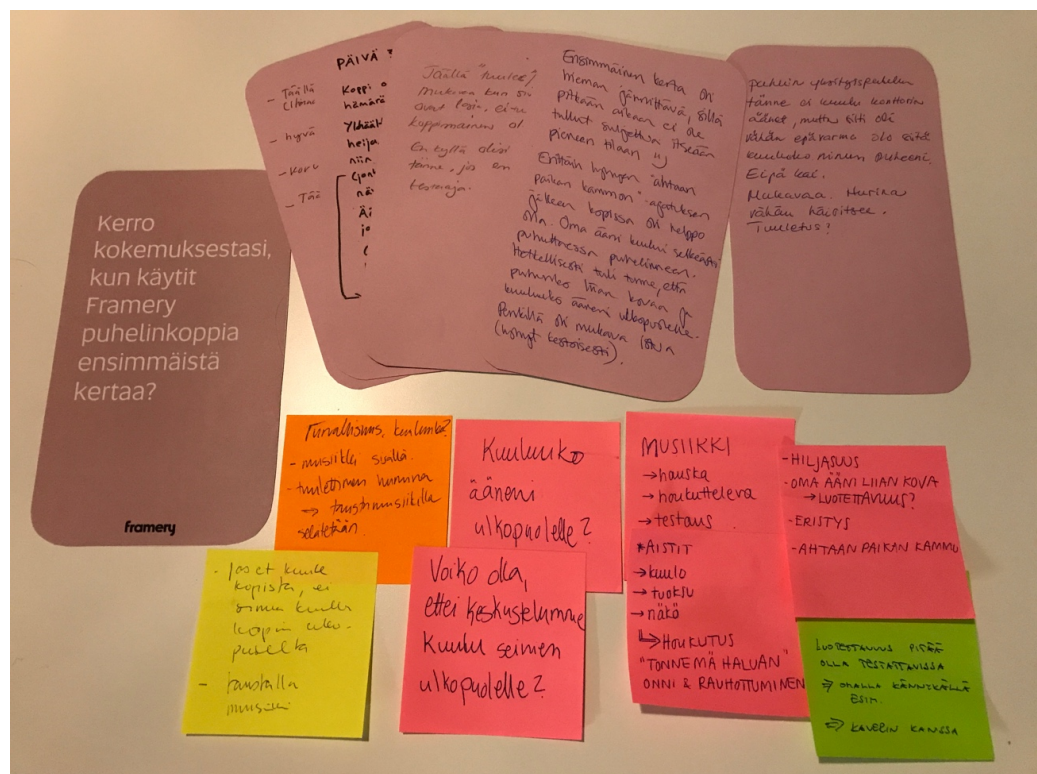 Kerro
kokemuksestasi,
kun käytit
Framery
puhelinkoppia
ensimmäistä
kertaa?
framery
PÄIVÄ
- Täällä
- hyvä
- Tää
Koppi
hämärä
heija
niin
Täällä "
mukava kun
koppimainen
En kyllä olisi
tänne, jos en
Ensimmäinen kerta oli
hieman jännittävä, sillä
pitkään aikaan ei ole
tullut suljettua itseään
pieneen tilaan :)
Erittäin lyhyen "ahtaan
paikan kammon" -ajatuksen
jälkeen kopissa oli helppo
olla. Oma ääni kuului selkeästi
puhuttaessa puhelimeen.
Hetkellisesti tuli tunne, että
puhunko liian kovaa ja
kuuluuko ääneni ulkopuolelle.
Penkillä oli mukava istua
(lyhyt kestoisesti).
puhuin yksityispuhelun
tänne ei kuulu konttorin
äänet, mutta silti oli
vähän epävarma olo siitä
kuuluuko minun puheeni.
Eipä kai.
Mukavaa. Hurina
vähän häiritsee.
Tuuletus?
Turvallisuus, kuuluuko?
- musiikki sisällä.
- tuulettimen humina
→ taustamusiikilla
selätetään.
Kuuluuko
ääneni
ulkopuolelle?
MUSIIKKI
→ hauska
→ houkutteleva
→ testaus
* AISTIT
→ kuulo
→ tuoksu
→ näkö
↳ HOUKUTUS
"TONNE MÄ HALUAN"
ONNI & RAUHOTTUMINEN
- HILJASUUS
- OMA ÄÄNI LIIAN KOVA
→ LUOTETTAVUUS?
- ERISTYS
- AHTAAN PAIKAN KAMMO
- Jos et kuule
kopista, ei
sinua kuulla
kopin ulko-
puhelta
- taustalla
musiikki
Voiko olla,
ettei keskustelumme
kuulu seinien
ulkopuolelle?
LUOTETTAVUUS PITÄÄ
OLLA TESTATTAVISSA
⇒ OMALLA KÄNNYKÄLLÄ
ESIM.
⇒ KAVERIN KANSSA